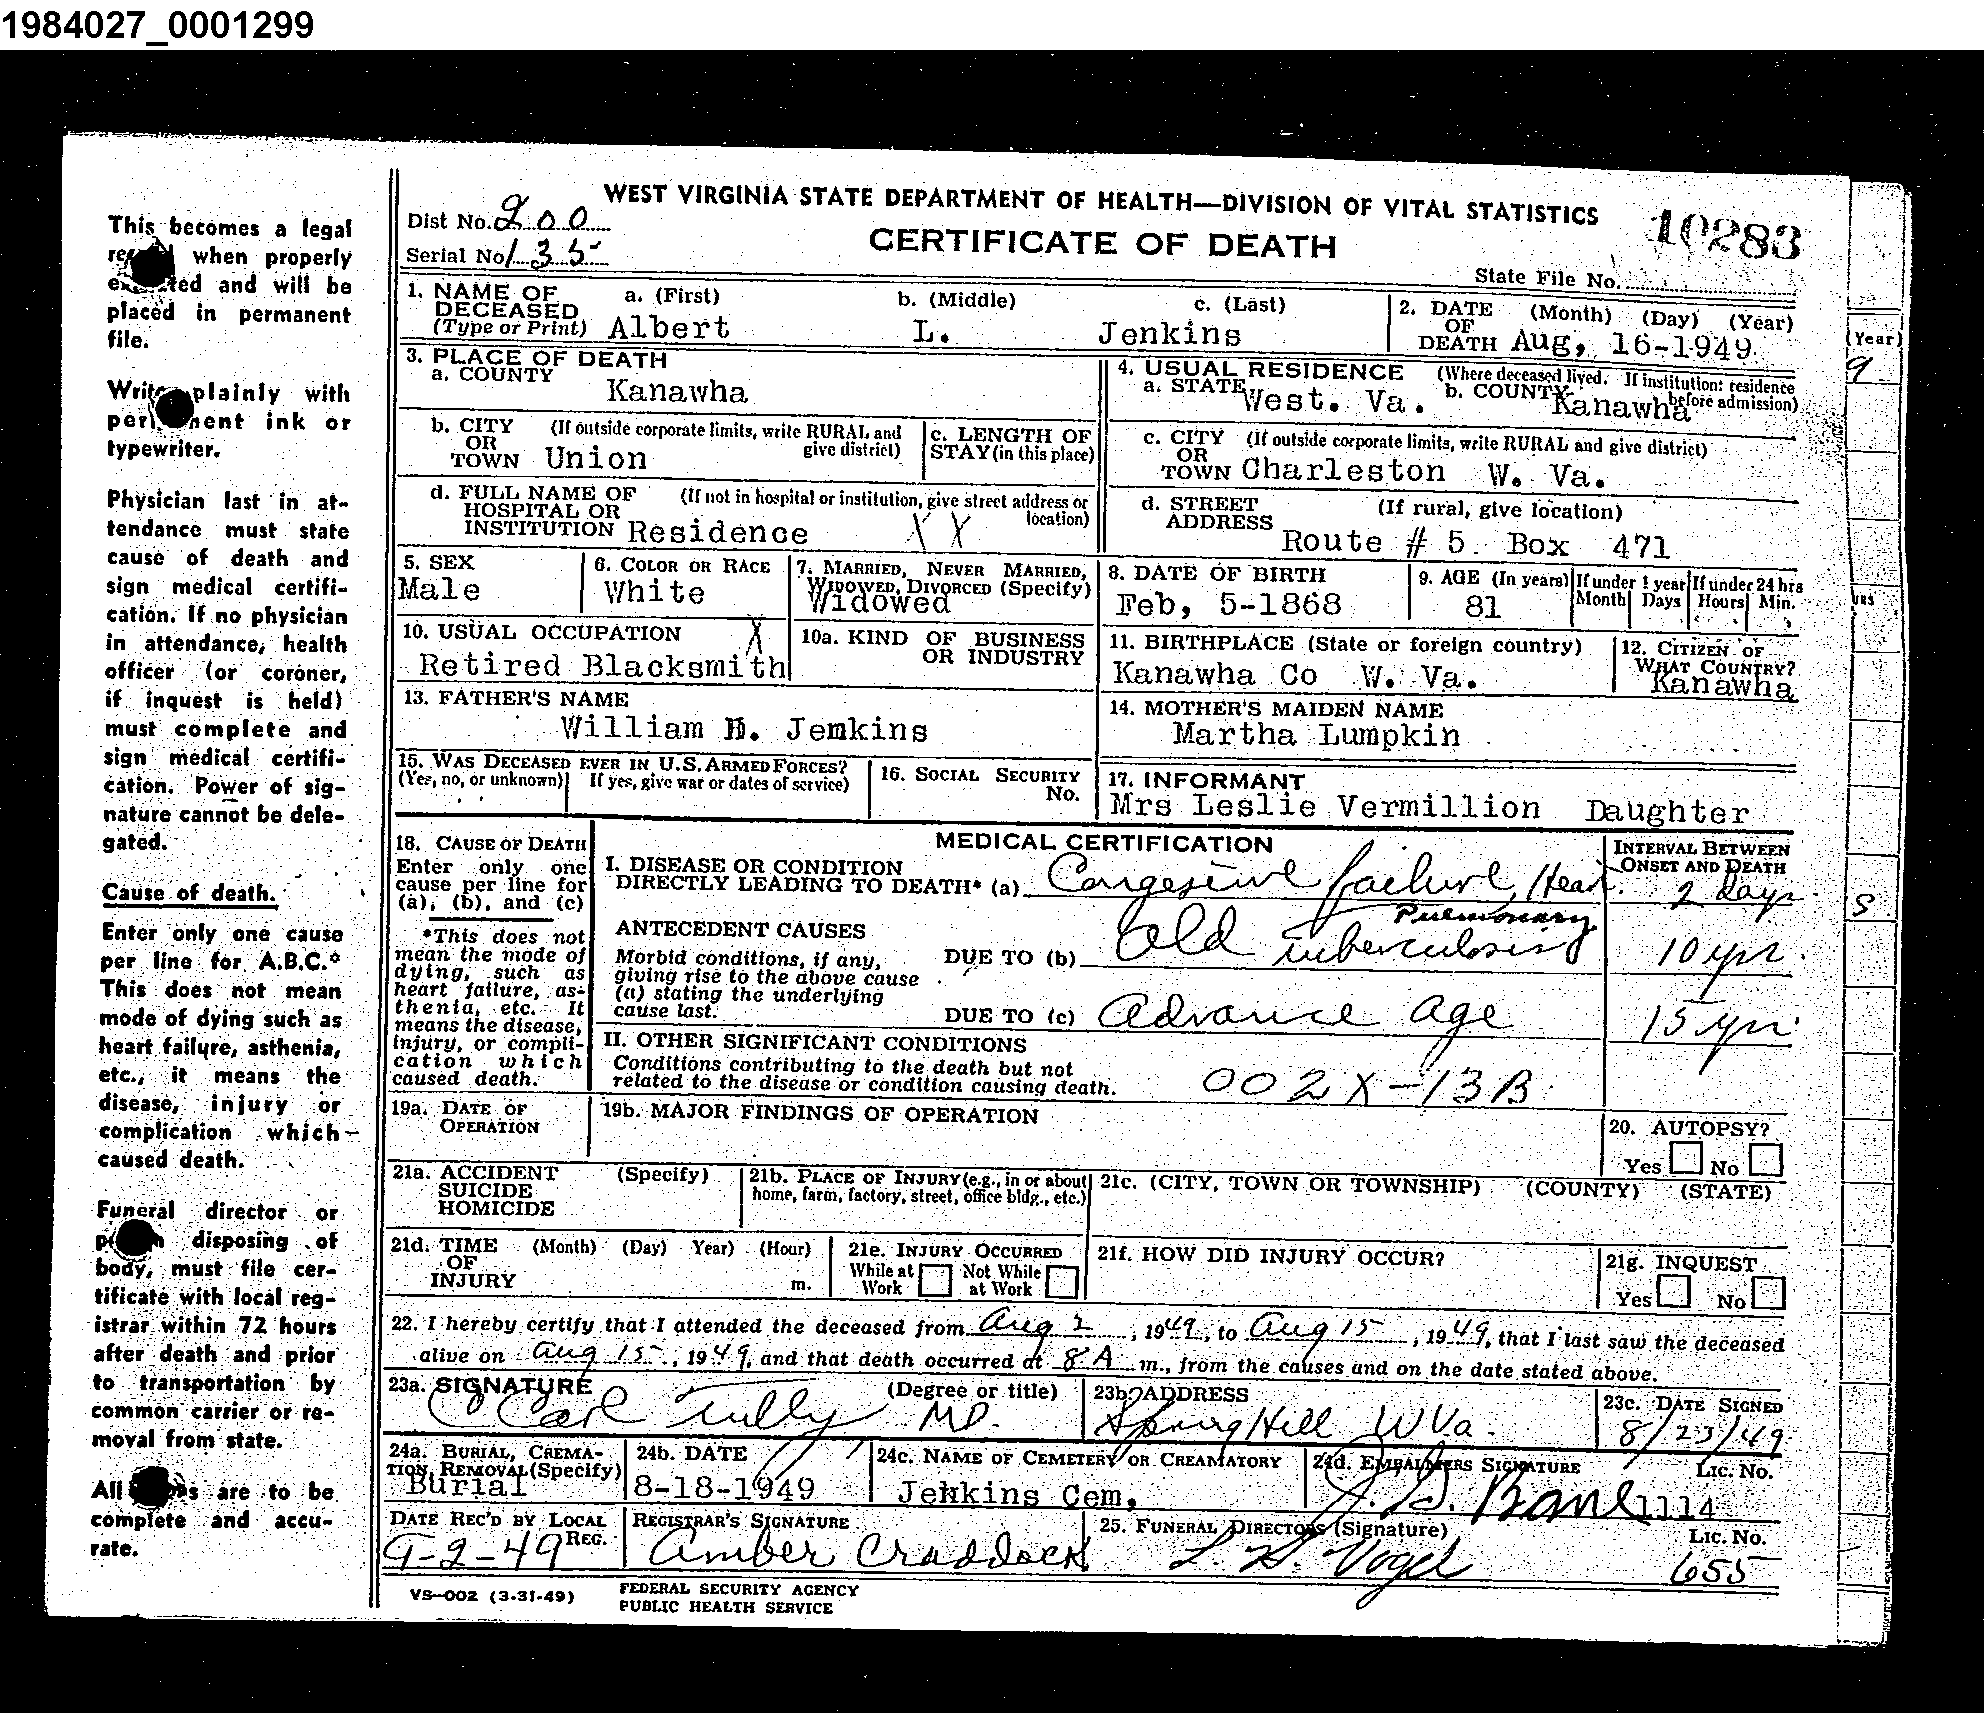 1984027_0001299
WEST VIRGINIA STATE DEPARTMENT OF HEALTH—DIVISION OF VITAL STATISTICS
CERTIFICATE OF DEATH
10283
Dist No. 200
Serial No 135
State File No.
This becomes a legal
when properly
and will be
placed in permanent
file.
Write plainly with
ink or
typewriter.
Physician last in at-
tendance must state
cause of death and
sign medical certifi-
cation. If no physician
in attendance, health
officer (or coroner,
if inquest is held)
must complete and
sign medical certifi-
cation. Power of sig-
nature cannot be dele-
gated.
Cause of death.
Enter only one cause
per line for A.B.C.*
This does not mean
mode of dying such as
heart failure, asthenia,
etc., it means the
disease, injury or
complication which
caused death.
Funeral director or
disposing of
body, must file cer-
tificate with local reg-
istrar within 72 hours
after death and prior
to transportation by
common carrier or re-
moval from state.
All are to be
complete and accu-
rate.
1. NAME OF DECEASED (Type or Print) a. (First) b. (Middle) c. (Last)
Albert L. Jenkins
2. DATE OF DEATH (Month) (Day) (Year)
Aug, 16-1949
3. PLACE OF DEATH
a. COUNTY Kanawha
4. USUAL RESIDENCE (Where deceased lived. If institution: residence before admission)
a. STATE West. Va. b. COUNTY Kanawha
b. CITY OR TOWN (If outside corporate limits, write RURAL and give district) Union
c. LENGTH OF STAY (in this place)
c. CITY OR TOWN (If outside corporate limits, write RURAL and give district)
Charleston W. Va.
d. FULL NAME OF HOSPITAL OR INSTITUTION (If not in hospital or institution, give street address or location)
Residence XX
d. STREET ADDRESS (If rural, give location)
Route # 5. Box 471
5. SEX Male
6. COLOR OR RACE White
7. MARRIED, NEVER MARRIED, WIDOWED, DIVORCED (Specify) Widowed
8. DATE OF BIRTH Feb, 5-1868
9. AGE (In years) 81
If under 1 year Month Days
If under 24 hrs Hours Min.
10. USUAL OCCUPATION X
Retired Blacksmith
10a. KIND OF BUSINESS OR INDUSTRY
11. BIRTHPLACE (State or foreign country)
Kanawha Co W. Va.
12. CITIZEN OF WHAT COUNTRY? Kanawha
13. FATHER'S NAME
William H. Jemkins
14. MOTHER'S MAIDEN NAME
Martha Lumpkin
15. WAS DECEASED EVER IN U.S. ARMED FORCES?
(Yes, no, or unknown) If yes, give war or dates of service)
16. SOCIAL SECURITY No.
17. INFORMANT
Mrs Leslie Vermillion Daughter
18. CAUSE OF DEATH
Enter only one
cause per line for
(a), (b), and (c)
*This does not
mean the mode of
dying, such as
heart failure, as-
thenia, etc. It
means the disease,
injury, or compli-
cation which
caused death.
MEDICAL CERTIFICATION
INTERVAL BETWEEN ONSET AND DEATH
I. DISEASE OR CONDITION
DIRECTLY LEADING TO DEATH* (a) Congestive failure, Heart 2 Days
ANTECEDENT CAUSES
Morbid conditions, if any,
giving rise to the above cause
(a) stating the underlying
cause last.
DUE TO (b) Old Pulmonary tuberculosis 10 yrs.
DUE TO (c) Advance age 15 yrs.
II. OTHER SIGNIFICANT CONDITIONS
Conditions contributing to the death but not
related to the disease or condition causing death.
002X-13B
19a. DATE OF OPERATION
19b. MAJOR FINDINGS OF OPERATION
20. AUTOPSY?
Yes No
21a. ACCIDENT SUICIDE HOMICIDE (Specify)
21b. PLACE OF INJURY (e.g., in or about home, farm, factory, street, office bldg., etc.)
21c. (CITY, TOWN OR TOWNSHIP) (COUNTY) (STATE)
21d. TIME OF INJURY (Month) (Day) Year) (Hour) m.
21e. INJURY OCCURRED
While at Work Not While at Work
21f. HOW DID INJURY OCCUR?
21g. INQUEST
Yes No
22. I hereby certify that I attended the deceased from Aug 2, 1949, to Aug 15, 1949, that I last saw the deceased
alive on Aug 15, 1949, and that death occurred at 8 A m., from the causes and on the date stated above.
23a. SIGNATURE (Degree or title)
Carl Tully MD.
23b. ADDRESS
Spring Hill W Va.
23c. DATE SIGNED
8/23/49
24a. BURIAL, CREMATION, REMOVAL (Specify)
Burial
24b. DATE
8-18-1949
24c. NAME OF CEMETERY OR CREAMATORY
Jenkins Cem,
24d. EMBALMERS SIGNATURE Lic. No.
1114
DATE REC'D BY LOCAL REG.
9-2-49
REGISTRAR'S SIGNATURE
Amber Craddock
25. FUNERAL DIRECTORS (Signature) Lic. No.
L. H. Vogel 655
VS-002 (3-31-49)
FEDERAL SECURITY AGENCY
PUBLIC HEALTH SERVICE
(Year)
9
S